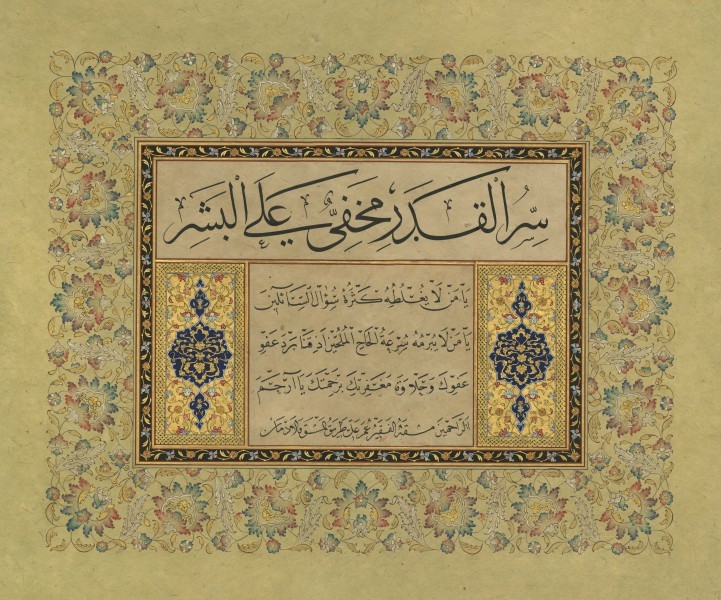 سِرُّ الْقَدَرِ مَخْفِيٌّ عَلَى الْبَشَرِ
يَا مَنْ لَا يُغْلِطُهُ كَثْرَةُ سُؤَالِ السَّائِلِينَ
يَا مَنْ لَا يُبْرِمُهُ سُرْعَةُ اِلْحَاحِ الْمُلِحِّينَ اَذِقْنَا بَرْدَ عَفْوِ
عَفْوِكَ وَحَلَاوَةَ مَغْفِرَتِكَ بِرَحْمَتِكَ يَا اَرْحَمَ
الرَّاحِمِينَ مشقه الفقير عمر